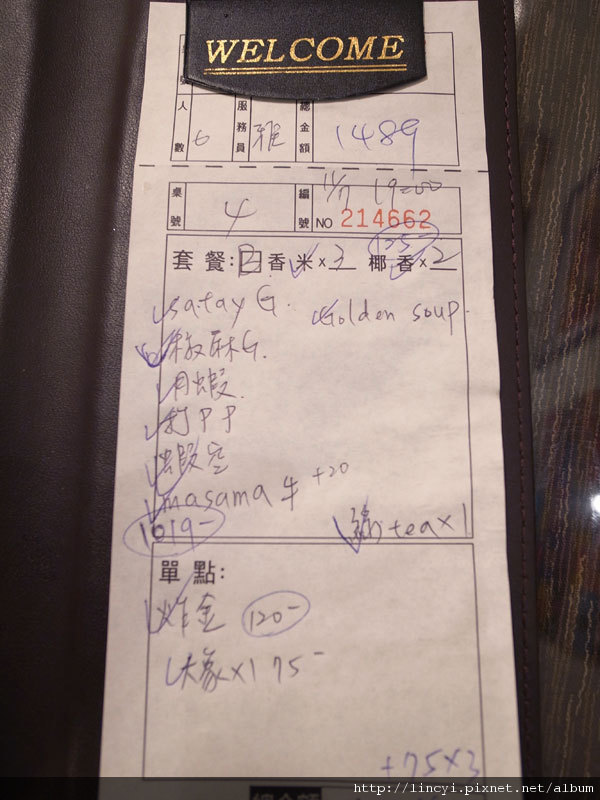 WELCOME
人數 6 服務員 雅 總金額 1489
桌號 4 編號 11/17 19:00
NO 214662
125-
套餐: 白香米×3 椰香×2
satay G. Golden soup.
椒麻G.
月蝦.
打PP
蝦空
masama牛 +20
1019- 綠tea×1
單點:
炸金 120-
大象×1 75-
+75×3
http://lincyi.pixnet.net/album